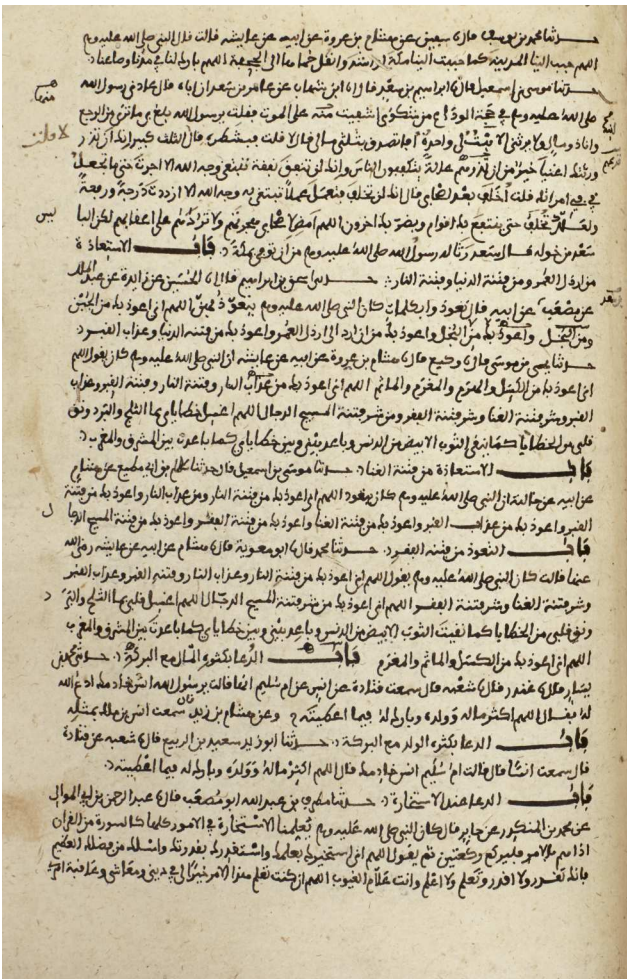 حدثنا محمد بن يوسف قال نا سفين عن هشام بن عروة عن ابيه عن عايشة قالت قال النبي صلى الله عليه وسلم
اللهم حبب الينا المدينة كما حببت الينا مكة او اشد وانقل حماها الى الجحفة اللهم بارك لنا في مدنا وصاعنا
حدثنا موسى بن اسمعيل قال نا ابراهيم بن سعد قال انا ابن شهاب عن عامر بن سعد ان اباه قال عادني رسول الله
صلى الله عليه وسلم في حجة الوداع من شكوى اشفيت منه على الموت فقلت يرسول الله بلغ بي ما ترى من الوجع
وانا ذو مال ولا يرثني الا ابنة لي واحدة افاتصدق بثلثي مالي قال لا قلت فبشطره قال الثلث كثير انك ان تذر
ورثتك اغنيا خير من ان تذرهم عالة يتكففون الناس وانك لن تنفق نفقة تبتغي وجه الله الا اجرت حتى ما تجعل
في في امراتك قلت اخلف بعد اصحابي قال انك لن تخلف فتعمل عملا تبتغي به وجه الله الا ازددت درجة ورفعة
ولعلك تخلف حتى ينتفع بك اقوام ويضر بك اخرون اللهم امض لاصحابي هجرتهم ولا تردهم على اعقابهم لكن البا
سعد بن خولة قال سعد رثا له رسول الله صلى الله عليه وسلم من ان توفي بمكة باب الاستعاذة
من ارذل العمر ومن فتنة الدنيا وفتنة النار حدثنا اسحق بن ابراهيم قال انا الحسين عن زايدة عن عبد الملك
عن مصعب عن ابيه قال تعوذوا بكلمات كان النبي صلى الله عليه وسلم يتعوذ بهن اللهم اني اعوذ بك من الجبن
ومن البخل واعوذ بك من البخل واعوذ بك من ان ارد الى ارذل العمر واعوذ بك من فتنة الدنيا وعذاب القبر
حدثنا يحيى بن موسى قال نا وكيع قال نا هشام بن عروة عن ابيه عن عايشة ان النبي صلى الله عليه وسلم كان يقول اللهم
اني اعوذ بك من الكسل والهرم والمغرم والماثم اللهم اني اعوذ بك من عذاب النار وفتنة النار وفتنة القبر وعذاب
القبر وشر فتنة الغنا وشر فتنة الفقر ومن شر فتنة المسيح الدجال اللهم اغسل خطاياي بما الثلج والبرد ونق
قلبي من الخطايا كما ينقى الثوب الابيض من الدنس وباعد بيني وبين خطاياي كما باعدت بين المشرق والمغرب
باب الاستعاذة من فتنة الغنا حدثنا موسى بن اسمعيل قال حدثنا سلام بن ابي مطيع عن هشام
عن ابيه عن خالته ان النبي صلى الله عليه وسلم كان يتعوذ اللهم اني اعوذ بك من فتنة النار ومن عذاب النار واعوذ بك من فتنة
القبر واعوذ بك من عذاب القبر واعوذ بك من فتنة الغنا واعوذ بك من فتنة الفقر واعوذ بك من فتنة المسيح الدجا
ل
باب التعوذ من فتنة الفقر حدثنا محمد قال نا ابو معوية قال نا هشام عن ابيه عن عايشة رضي الله
عنها قالت كان النبي صلى الله عليه وسلم يقول اللهم اني اعوذ بك من فتنة النار وعذاب النار وفتنة القبر وعذاب القبر
وشر فتنة الغنا وشر فتنة الفقر اللهم اني اعوذ بك من شر فتنة المسيح الدجال اللهم اغسل قلبي بما الثلج والبر
د
ونق قلبي من الخطايا كما نقيت الثوب الابيض من الدنس وباعد بيني وبين خطاياي كما باعدت بين المشرق والمغرب
اللهم اني اعوذ بك من الكسل والماثم والمغرم باب الدعا بكثرة المال مع البركة حدثني محمد بن
بشار قال نا غندر قال نا شعبة قال سمعت قتادة عن انس عن ام سليم انها قالت يرسول الله انس خادمك ادع الله
له فقال اللهم اكثر ماله وولده وبارك له فيما اعطيته وعن هشام بن زيد قال سمعت انس بن ملك بمثله
باب الدعا بكثرة الولد مع البركة حدثنا ابو زيد سعيد بن الربيع قال نا شعبة عن قتادة
قال سمعت انسا قال قالت ام سليم انس خادمك قال اللهم اكثر ماله وولده وبارك له فيما اعطيته
باب الدعا عند الاستخارة حدثنا مطرف بن عبد الله ابو مصعب قال نا عبد الرحمن بن ابي الموالي
عن محمد بن المنكدر عن جابر قال كان النبي صلى الله عليه وسلم يعلمنا الاستخارة في الامور كلها كالسورة من القران
اذا هم بالامر فليركع ركعتين ثم يقول اللهم اني استخيرك بعلمك واستقدرك بقدرتك واسلك من فضلك العظيم
فانك تقدر ولا اقدر وتعلم ولا اعلم وانت علام الغيوب اللهم ان كنت تعلم هذا الامر خيرا لي في ديني ومعاشي وعاقبة امري